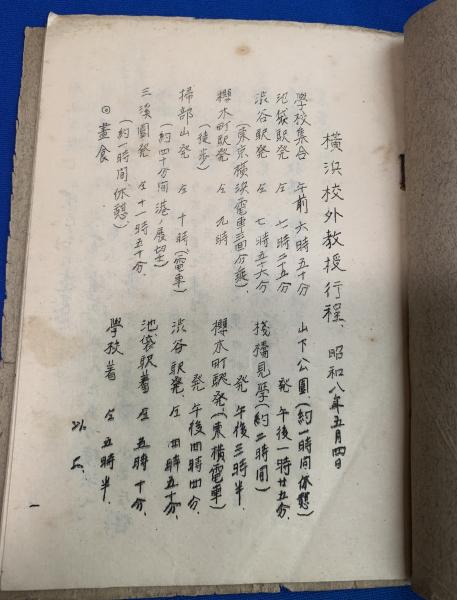 横浜校外教授行程、昭和八年五月四日
学校集合 午前六時五十分
池袋駅発 仝 七時二十五分
渋谷駅発 仝 七時五十六分
(東京横浜電車三回分乗)
櫻木町駅発 仝 九時
(徒歩)
掃部山発 仝 十時(電車)
(約四十分间港ノ展望)
三溪園発 仝 十一時五十分、
(約一時间休憩)
◎昼食
山下公園、(約一時间休憩)
発 午後一時廿五分、
桟橋見学(約二時间)
発 午後三時半、
櫻木町駅発、(東横電車)
発 午後四時四分、
渋谷駅発、仝 四時五十分、
池袋駅着 仝 五時十分、
学校着 仝 五時半、
一